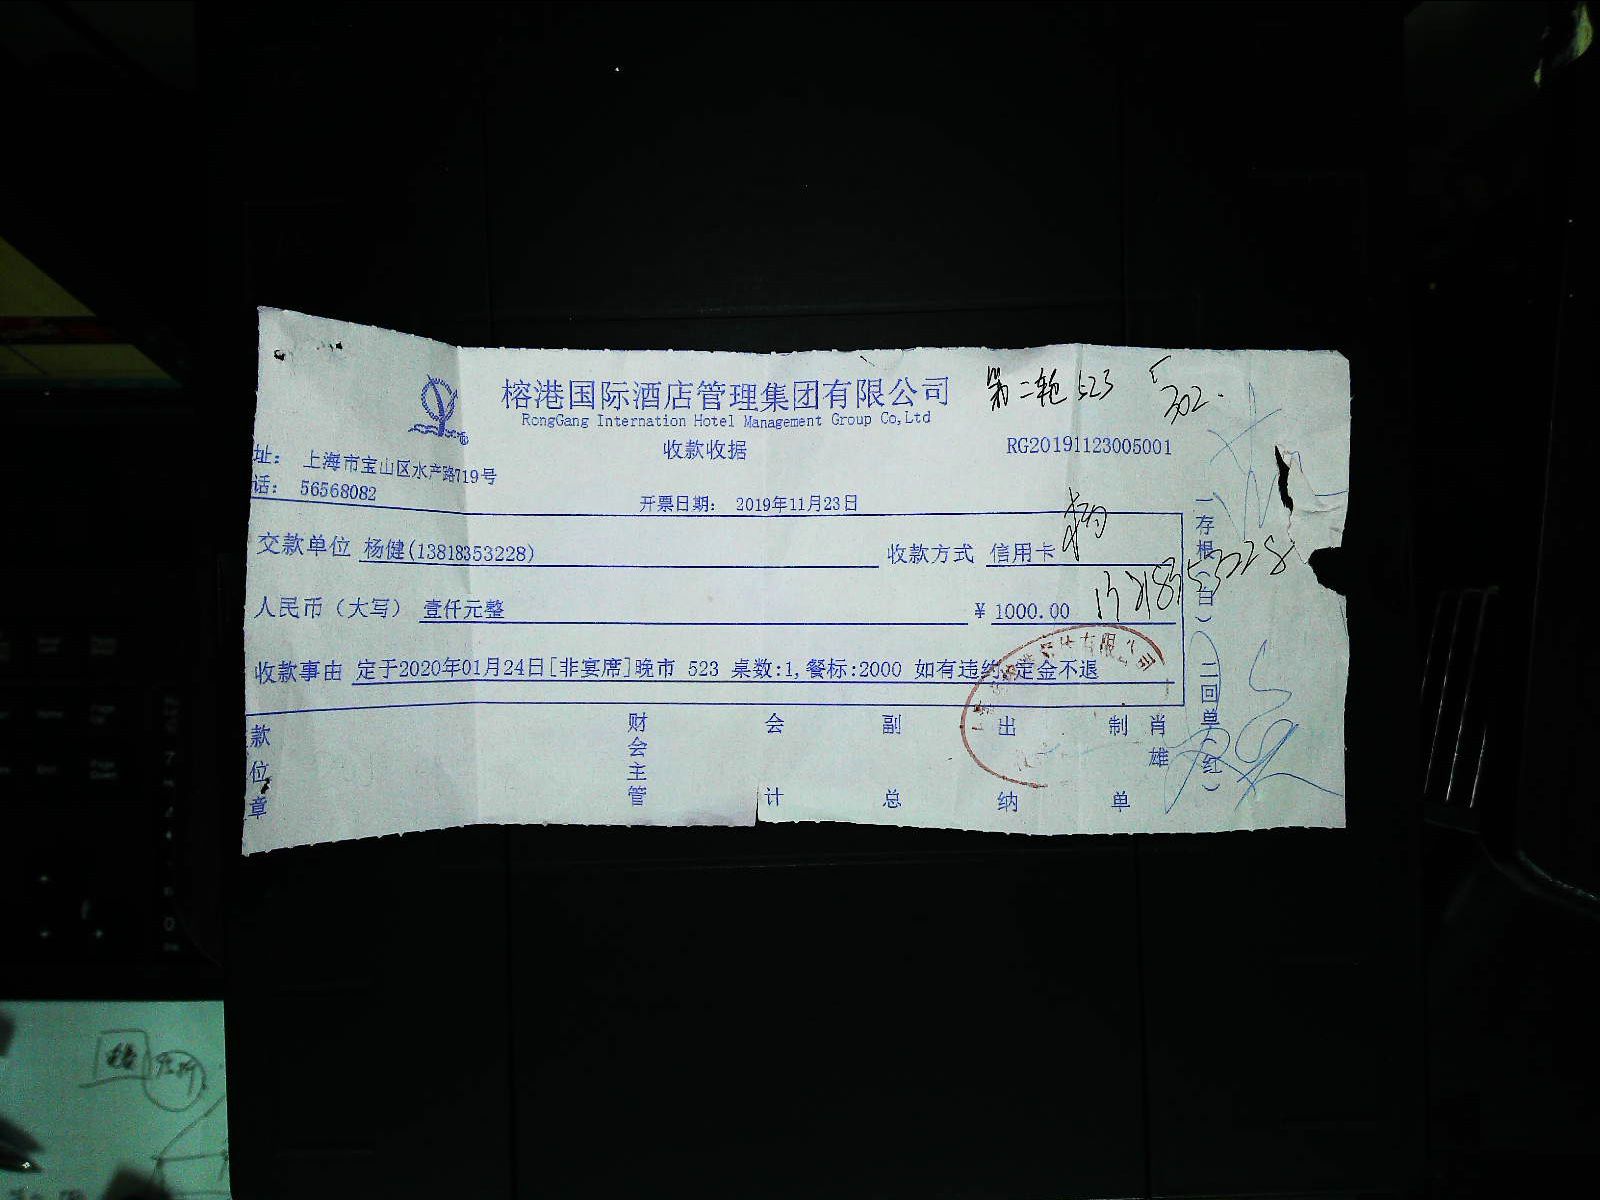 榕港国际酒店管理集团有限公司
RongGang Internation Hotel Management Group Co,Ltd
第二轮 523
302.
收款收据
RG20191123005001
址： 上海市宝山区水产路719号
话： 56568082
开票日期： 2019年11月23日
交款单位 杨健(13818353228)
收款方式 信用卡
人民币（大写） 壹仟元整
¥ 1000.00
收款事由 定于2020年01月24日[非宴席]晚市 523 桌数:1,餐标:2000 如有违约 定金不退
款位章
财会主管
会计
副总
出纳
制单
肖雄
一存根（白）
二回单（红）
有限公司